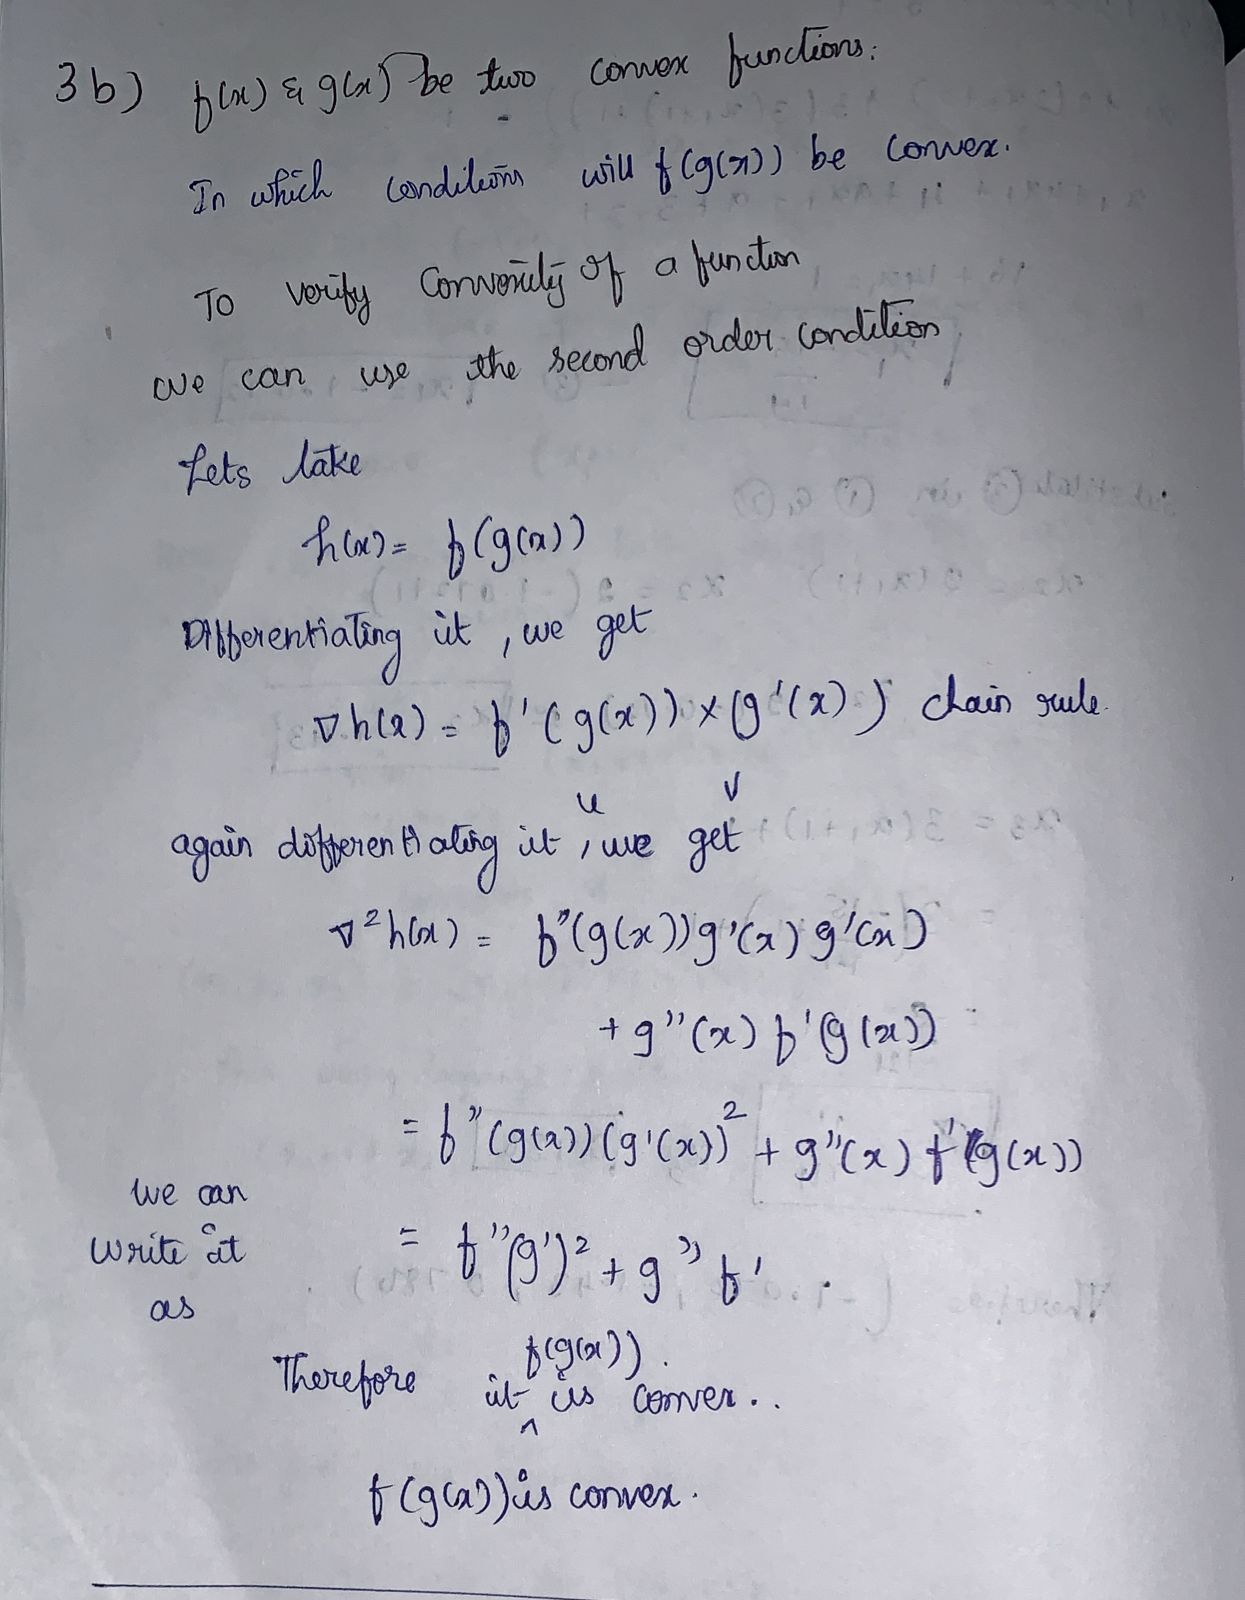 3b) f(x) & g(x) be two convex functions.
In which conditions will f(g(x)) be convex.
To verify convexity of a function
we can use the second order condition
Lets take
h(x) = f(g(x))
Differentiating it, we get
∇h(x) = f'(g(x)) × (g'(x)) chain rule.
u v
again differentiating it, we get
∇²h(x) = f''(g(x))g'(x) g'(x)
+ g''(x) f'(g(x))
= f''(g(x)) (g'(x))² + g''(x) f'(g(x))
we can
write it
as
= f''(g')² + g'' f'.
f(g(x)).
Therefore it ^ is convex..
f(g(x)) is convex.